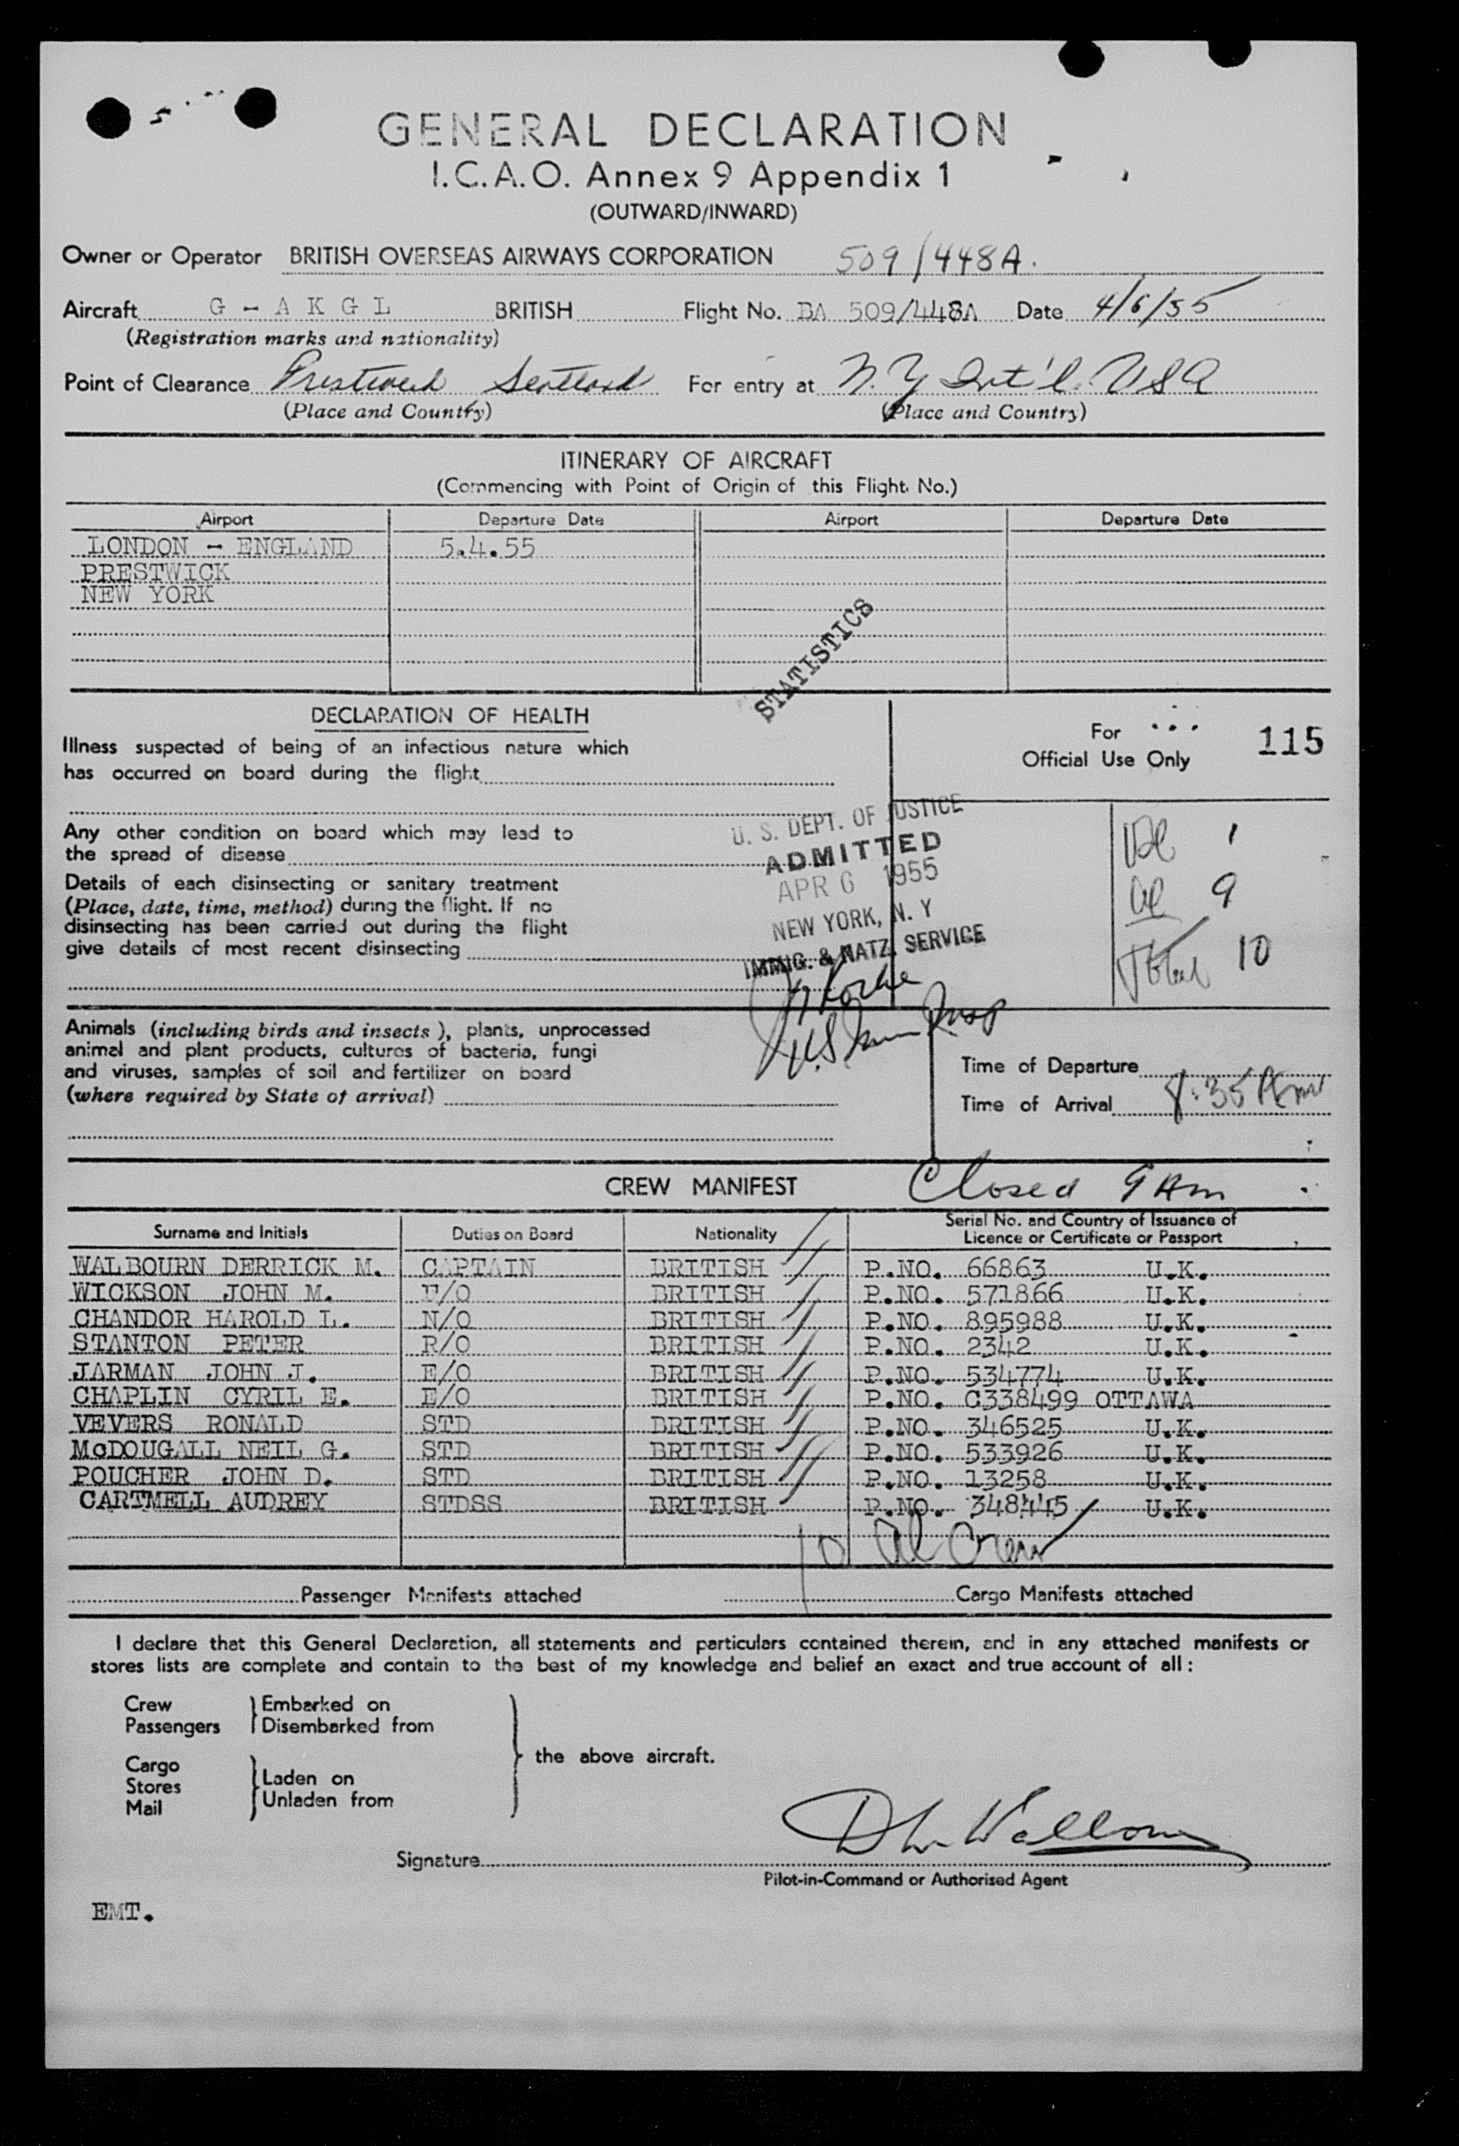 GENERAL DECLARATION
I.C.A.O. Annex 9 Appendix 1
(OUTWARD/INWARD)
Owner or Operator BRITISH OVERSEAS AIRWAYS CORPORATION 509/448A.
Aircraft G - A K G L BRITISH Flight No. BA 509/448A Date 4/6/55
(Registration marks and nationality)
Point of Clearance Prestwick Scotland For entry at N.Y Int'l. USA
(Place and Country) (Place and Country)
ITINERARY OF AIRCRAFT
(Commencing with Point of Origin of this Flight No.)
Airport Departure Date Airport Departure Date
LONDON - ENGLAND 5.4.55
PRESTWICK
NEW YORK
STATISTICS
DECLARATION OF HEALTH
Illness suspected of being of an infectious nature which
has occurred on board during the flight
For
Official Use Only 115
Any other condition on board which may lead to
the spread of disease
Details of each disinsecting or sanitary treatment
(Place, date, time, method) during the flight. If no
disinsecting has been carried out during the flight
give details of most recent disinsecting
U. S. DEPT. OF JUSTICE
ADMITTED
APR 6 1955
NEW YORK, N. Y
IMMIG. & NATZ. SERVICE
1
al 9
Total 10
Animals (including birds and insects), plants, unprocessed
animal and plant products, cultures of bacteria, fungi
and viruses, samples of soil and fertilizer on board
(where required by State of arrival)
Time of Departure
Time of Arrival 8:35 Am
CREW MANIFEST Closed 9 Am
Surname and Initials Duties on Board Nationality Serial No. and Country of Issuance of
Licence or Certificate or Passport
WALBOURN DERRICK M. CAPTAIN BRITISH P.NO. 66863 U.K.
WICKSON JOHN M. F/O BRITISH P.NO. 571866 U.K.
CHANDOR HAROLD L. N/O BRITISH P.NO. 895988 U.K.
STANTON PETER R/O BRITISH P.NO. 2342 U.K.
JARMAN JOHN J. E/O BRITISH P.NO. 534774 U.K.
CHAPLIN CYRIL E. E/O BRITISH P.NO. C338499 OTTAWA
VEVERS RONALD STD BRITISH P.NO. 346525 U.K.
McDOUGALL NEIL G. STD BRITISH P.NO. 533926 U.K.
POUCHER JOHN D. STD BRITISH P.NO. 13258 U.K.
CARTMELL AUDREY STDSS BRITISH P.NO. 348445 U.K.
10 al Crew
Passenger Manifests attached Cargo Manifests attached
I declare that this General Declaration, all statements and particulars contained therein, and in any attached manifests or
stores lists are complete and contain to the best of my knowledge and belief an exact and true account of all:
Crew Embarked on
Passengers Disembarked from
the above aircraft.
Cargo
Stores Laden on
Mail Unladen from
Signature
Pilot-in-Command or Authorised Agent
EMT.